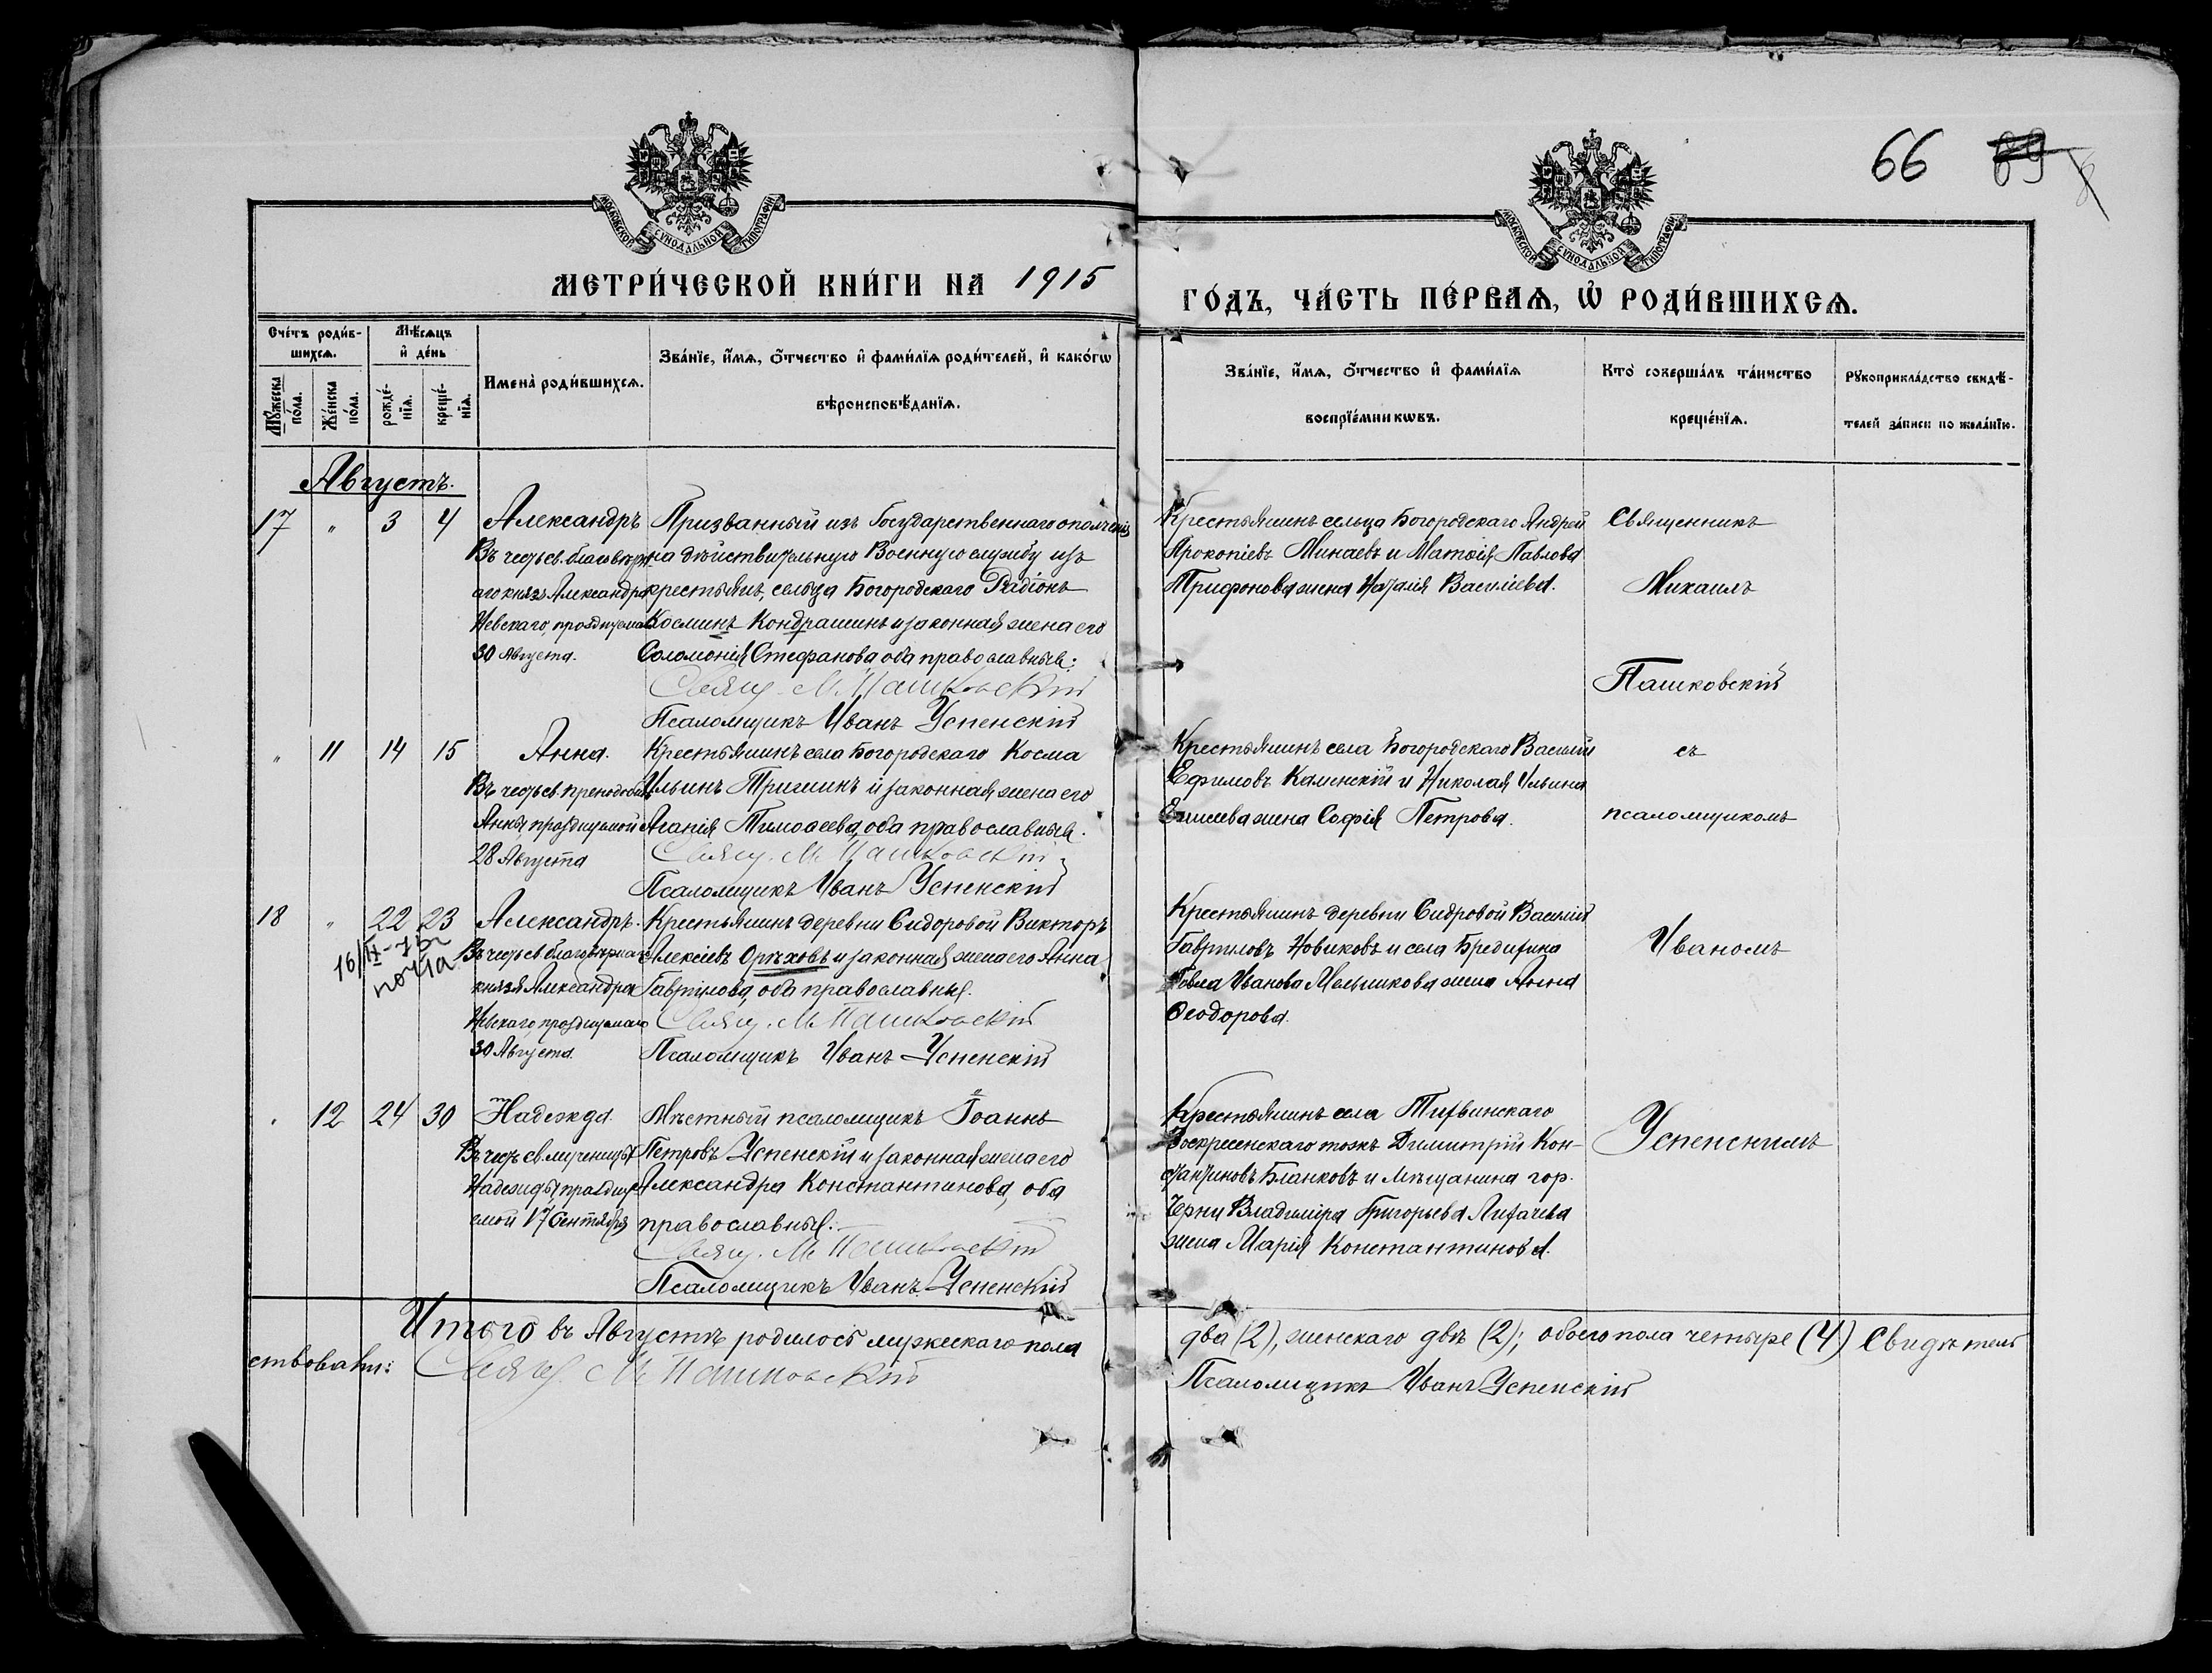 66 89
МОСКОВСКОЙ СѴНОДАЛЬНОЙ ТИПОГРАФІИ
МОСКОВСКОЙ СѴНОДАЛЬНОЙ ТИПОГРАФІИ
МЕТРИ́ЧЕСКОЙ КНИ́ГИ НА 1915
ГО́ДЪ, ЧА́СТЬ ПЕ́РВАѦ, Ѡ РОДИ́ВШИХСѦ.
Сче́тъ роди́в-
шихсѧ.
Мѣ́сѧцъ
и҆ де́нь
Мꙋ́жеска по́ла.
Же́нска по́ла.
рожде́-
нїѧ.
креще́-
нїѧ.
Имена̀ роди́вшихсѧ.
Зва́нїе, и҆́мѧ, ѻ҆́тчество и҆ фами́лїѧ роди́телей, и҆ како́гѡ
вѣроисповѣ́данїѧ.
Зва́нїе, и҆́мѧ, ѻ҆́тчество и҆ фами́лїѧ
воспрїе́мникѡвъ.
Кто̀ соверша́лъ та́инство
креще́нїѧ.
Рꙋкоприкла́дство свидѣ́-
телей за́писи по жела́нїю.
Августъ.
17 " 3 4
Александръ
Въ честь св. благовѣрн-
аго князя Александра
Невскаго, празднуемаго
30 Августа.
Призванный изъ Государственнаго ополченія
на дѣйствительную Военную службу изъ
крестьянъ, сельца Богородскаго Радіонъ
Косминъ Кондрашинъ и законная жена его
Соломонія Стефанова, оба православные:
Свящ. М. Пашковскій
Псаломщикъ Иванъ Успенскій
Крестьянинъ сельца Богородскаго Андрей
Прокопіевъ Минаевъ и Матѳія Павлова
Трифонова жена Наталія Васильева.
Священникъ
Михаилъ
Пашковскій
" 11 14 15
Анна.
Въ честь св. преподобной
Анны, празднуемой
28 Августа
Крестьянинъ села Богородскаго Косма
Ильинъ Тришинъ и законная жена его
Агапія Тимоѳеева, оба православные.
Свящ. М. Пашковскій
Псаломщикъ Иванъ Успенскій
Крестьянинъ села Богородскаго Василій
Ефимовъ Каменскій и Николая Ильина
Елисеева жена Софія Петрова.
съ
псаломщикомъ
18 " 22 23
16/IX-75г
почта
Александръ.
Въ честь св. благовѣрнаго
князя Александра
Невскаго празднуемаго
30 Августа.
Крестьянинъ деревни Сидоровой Викторъ
Алексіевъ Орѣховъ и законная жена его Анна
Гавріилова, оба православные.
Свящ. М. Пашковскій
Псаломщикъ Иванъ Успенскій
Крестьянинъ деревни Сидровой Василій
Гавріиловъ Новиковъ и села Бредихина
Іовля Иванова Мельникова жена Анна
Ѳеодорова.
Иваномъ
" 12 24 30
Надежда.
Въ честь св. мученицы
Надежды, праздну-
емой 17 Сентября
Мѣстный псаломщикъ Іоаннъ
Петровъ Успенскій и законная жена его
Александра Константинова, оба
православные:
Свящ. М. Пашковскій
Псаломщикъ Иванъ Успенскій
Крестьянинъ села
Воскресенскаго тожъ Димитрій Кон-
стантиновъ Бланковъ и мѣщанина гор.
Черни Владиміра Григорьева Лихачева
жена Марія Константинова.
Успенскимъ
Итого въ Августѣ родилось мужескаго пола
два (2), женскаго двѣ (2); обоего пола четыре (4) Свидѣтель
ствовали: Свящ. М. Пашковскій
Псаломщикъ Иванъ Успенскій